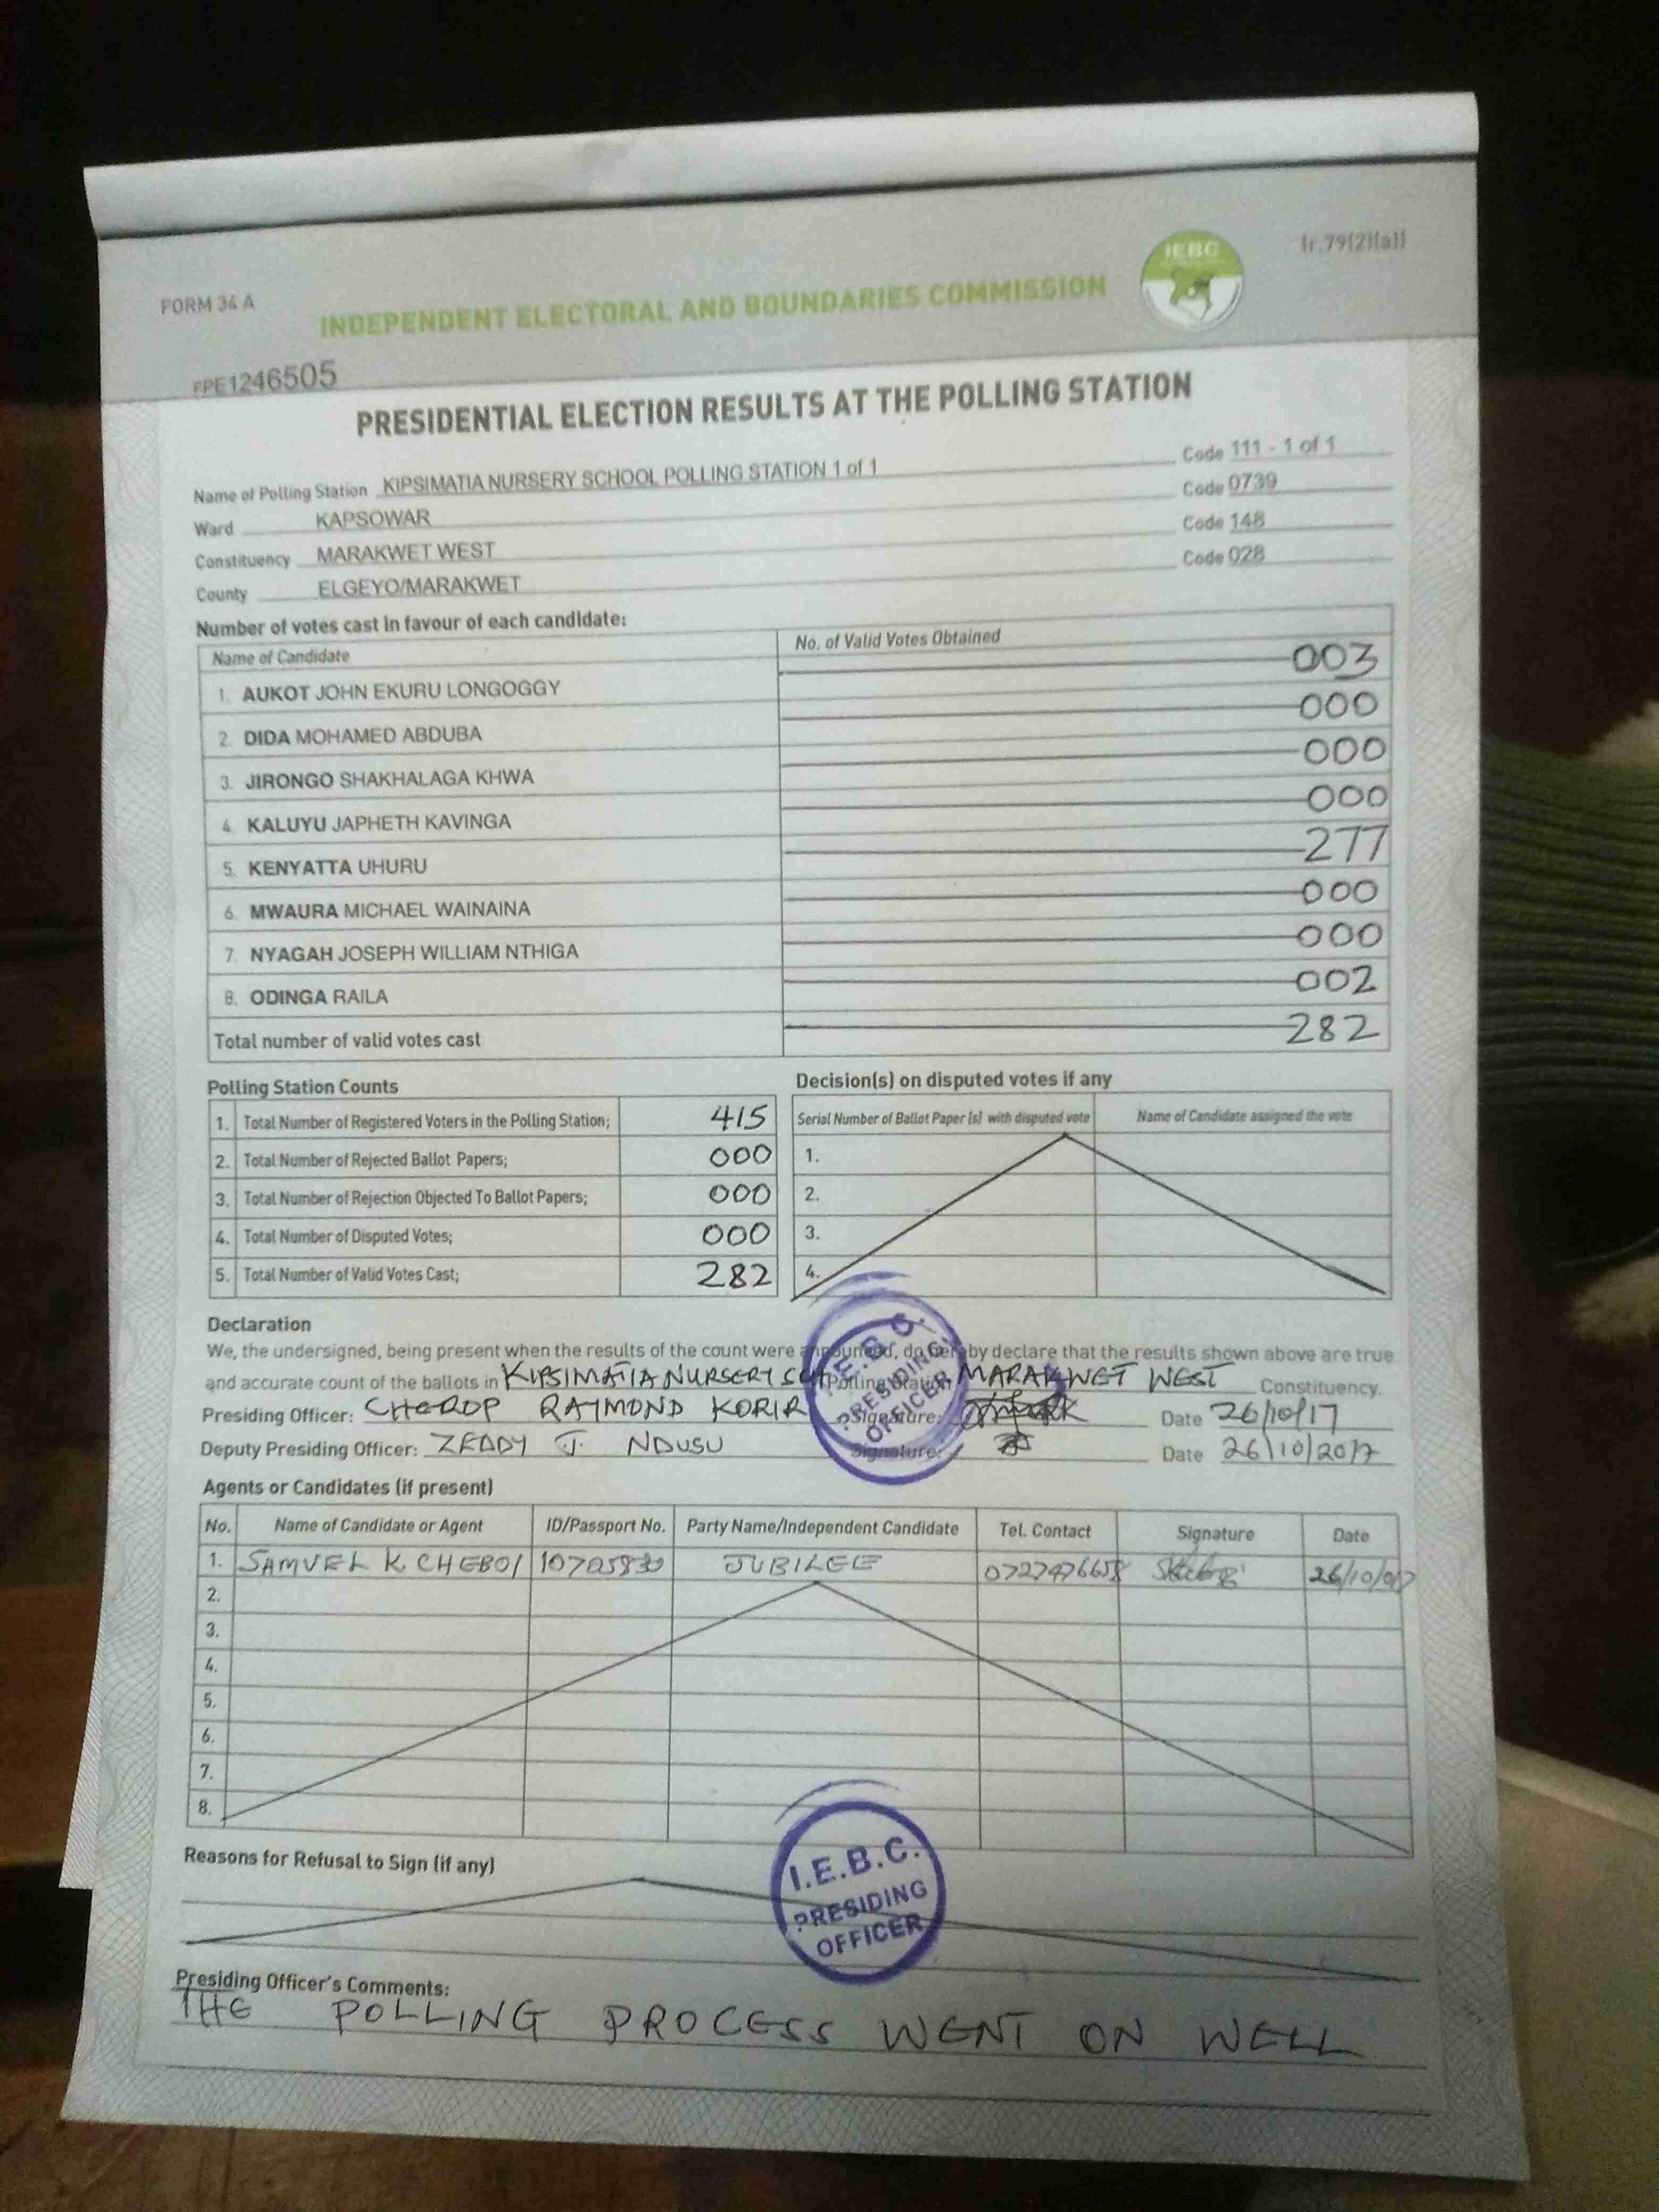 IEBC
[r.79(2)(a)]
FORM 34 A
INDEPENDENT ELECTORAL AND BOUNDARIES COMMISSION
FPE1246505
PRESIDENTIAL ELECTION RESULTS AT THE POLLING STATION
Name of Polling Station KIPSIMATIA NURSERY SCHOOL POLLING STATION 1 of 1 Code 111 - 1 of 1
Ward KAPSOWAR Code 0739
Constituency MARAKWET WEST Code 148
County ELGEYO/MARAKWET Code 028
Number of votes cast in favour of each candidate:
Name of Candidate No. of Valid Votes Obtained
1. AUKOT JOHN EKURU LONGOGGY 003
2. DIDA MOHAMED ABDUBA 000
3. JIRONGO SHAKHALAGA KHWA 000
4. KALUYU JAPHETH KAVINGA 000
5. KENYATTA UHURU 277
6. MWAURA MICHAEL WAINAINA 000
7. NYAGAH JOSEPH WILLIAM NTHIGA 000
8. ODINGA RAILA 002
Total number of valid votes cast 282
Polling Station Counts
1. Total Number of Registered Voters in the Polling Station; 415
2. Total Number of Rejected Ballot Papers; 000
3. Total Number of Rejection Objected To Ballot Papers; 000
4. Total Number of Disputed Votes; 000
5. Total Number of Valid Votes Cast; 282
Decision(s) on disputed votes if any
Serial Number of Ballot Paper (s) with disputed vote Name of Candidate assigned the vote
1.
2.
3.
4.
Declaration
We, the undersigned, being present when the results of the count were announced, do hereby declare that the results shown above are true
and accurate count of the ballots in KIPSIMATIA NURSERY SCH Polling Station MARAKWET WEST Constituency.
Presiding Officer: CHEROP RAYMOND KORIR Signature: Date 26/10/17
Deputy Presiding Officer: ZEDDY J. NDUSU Signature: Date 26/10/2017
I.E.B.C.
PRESIDING
OFFICER
Agents or Candidates (if present)
No. Name of Candidate or Agent ID/Passport No. Party Name/Independent Candidate Tel. Contact Signature Date
1. SAMUEL K. CHEBOI JUBILEE
2.
3.
4.
5.
6.
7.
8.
Reasons for Refusal to Sign (if any)
I.E.B.C.
PRESIDING
OFFICER
Presiding Officer's Comments:
THE POLLING PROCESS WENT ON WELL